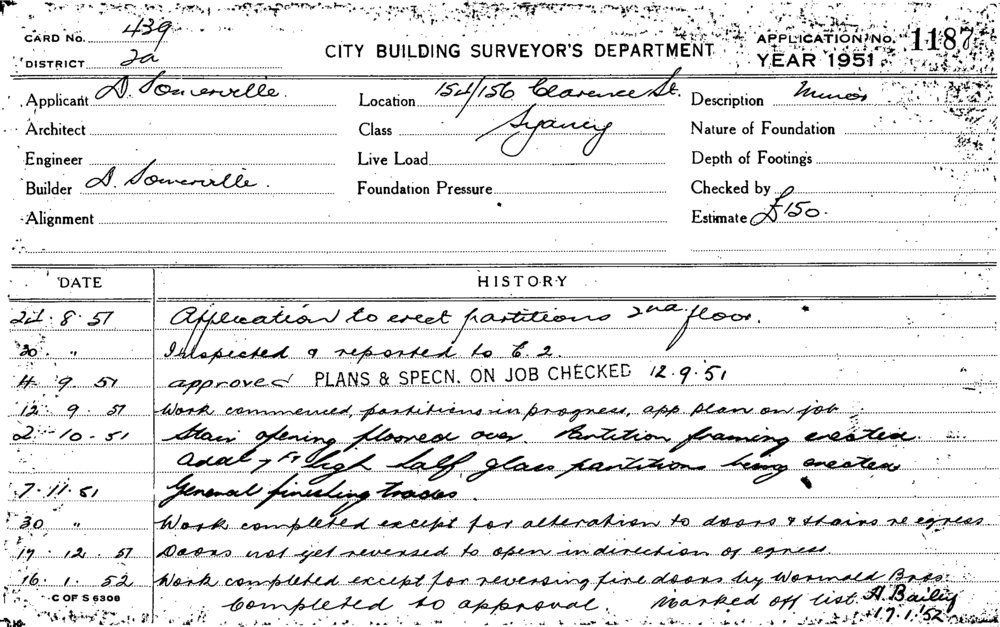 CARD No. 439
CITY BUILDING SURVEYOR'S DEPARTMENT
APPLICATION No. 1187
DISTRICT 2a
YEAR 1951
Applicant D. Somerville.
Location 154/156 Clarence St.
Description Minor
Architect
Class Sydney
Nature of Foundation
Engineer
Live Load
Depth of Footings
Builder D. Somerville.
Foundation Pressure
Checked by
Alignment
Estimate £150.
DATE HISTORY
24. 8. 51 Application to erect partitions 2nd floor.
30. " Inspected & reported to C. 2.
4. 9. 51 approved PLANS & SPECN. ON JOB CHECKED 12.9.51
12. 9. 51 Work commenced, partitions in progress, app plan on job
2. 10. 51 Stair opening floored over. Partition framing erected
Addl 7 ft high half glass partitions being erected
7. 11. 51 General finishing trades.
30 " Work completed except for alteration to doors & stairs re egress
17. 12. 51 Doors not yet reversed to open in direction of egress.
16. 1. 52 Work completed except for reversing fire doors by Wormald Bros.
C OF S 6308
Completed to approval. Marked off list. A. Bailey
17.1.52